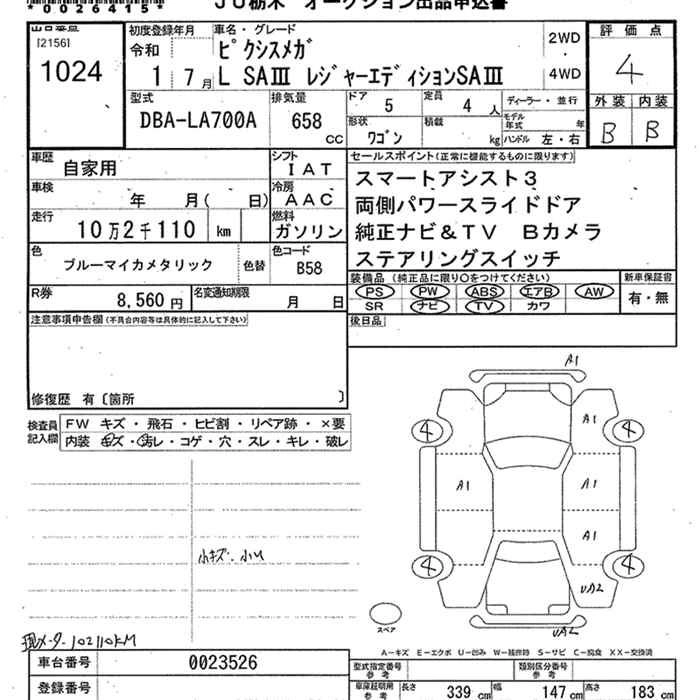 *0026415*
JU栃木 オークション出品申込書
出品番号
[2156]
1024
初度登録年月
令和
1 7月
車名・グレード
ピクシスメガ
L SAⅢ レジャーエディションSAⅢ
2WD
・
4WD
評価点
4
外装 内装
B B
型式
DBA-LA700A
排気量
658
cc
ドア 5
定員 4 人
ディーラー・並行
形状 ワゴン
積載 kg
モデル年式 年
ハンドル 左・右
車歴
自家用
シフト
IAT
車検
年 月( 日)
冷房
AAC
走行
10万2千110 km
燃料
ガソリン
色
ブルーマイカメタリック
色替
色コード
B58
R券
8,560 円
名変通知期限
月 日
セールスポイント(正常に機能するものに限ります)
スマートアシスト3
両側パワースライドドア
純正ナビ&TV Bカメラ
ステアリングスイッチ
装備品 (純正品に限り○をつけてください)
新車保証書
PS PW ABS エアB AW
SR ナビ TV カワ
有・無
後日品
注意事項申告欄(不具合内容等は具体的に記入して下さい)
修復歴 有〔箇所 〕
検査員
記入欄
FW キズ・飛石・ヒビ割・リペア跡・×要
内装 キズ・汚レ・コゲ・穴・スレ・キレ・破レ
小キズ・小U
現メーター102110KM
A1
4 A1 4
A1 A1
A1
4 4
UA2
UA2
スペア
A-キズ E-エクボ U-凹み W-補修跡 S-サビ C-腐食 XX-交換済
車台番号
0023526
登録番号
型式指定番号
参考
類別区分番号
参考
車庫証明用
参考
長さ 339 cm
幅 147 cm
高さ 183 cm